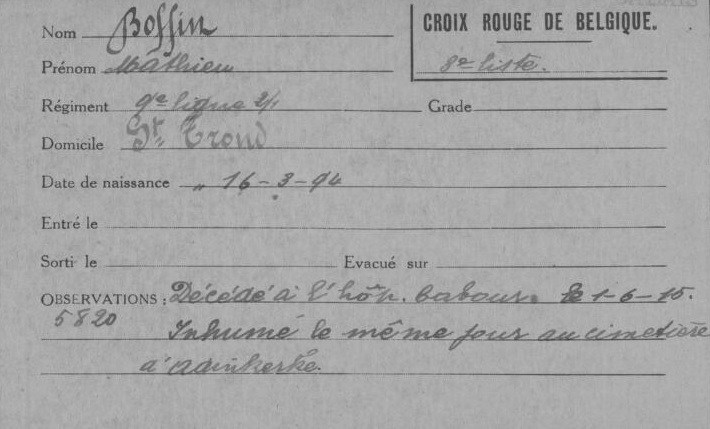 Nom Bossin
CROIX ROUGE DE BELGIQUE.
Prénom Mathieu
8e liste.
Régiment 9e ligne 2/1 Grade
Domicile St. Trond
Date de naissance " 16-3-94
Entré le
Sorti le Evacué sur
OBSERVATIONS : Décédé à l'hôp. Cabour. le 1-6-15.
5820 Inhumé le même jour au cimetière
d'Adinkerke.